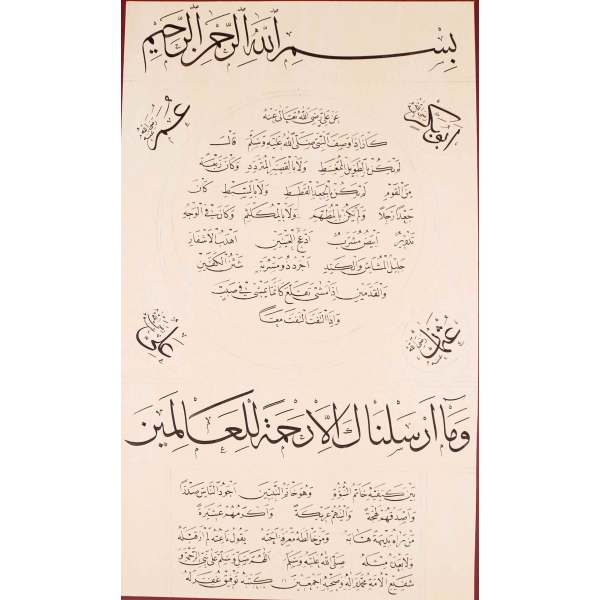 بِسْمِ اللهِ الرَّحْمٰنِ الرَّحِيمِ
ابوبكر رضي الله عنه
عمر رضي الله عنه
عَنْ عَلِيٍّ رَضِيَ اللهُ تَعَالَى عَنْهُ
كَانَ إِذَا وَصَفَ النَّبِيَّ صَلَّى اللهُ عَلَيْهِ وَسَلَّمَ قَالَ
لَمْ يَكُنْ بِالطَّوِيلِ الْمُمَّغِطِ وَلَا بِالْقَصِيرِ الْمُتَرَدِّدِ وَكَانَ رَبْعَةً
مِنَ الْقَوْمِ لَمْ يَكُنْ بِالْجَعْدِ الْقَطَطِ وَلَا بِالسَّبِطِ كَانَ
جَعْدًا رَجِلًا وَلَمْ يَكُنْ بِالْمُطَهَّمِ وَلَا بِالْمُكَلْثَمِ وَكَانَ فِي الْوَجْهِ
تَدْوِيرٌ أَبْيَضُ مُشْرَبٌ أَدْعَجُ الْعَيْنَيْنِ أَهْدَبُ الْأَشْفَارِ
جَلِيلُ الْمُشَاشِ وَالْكَتَدِ أَجْرَدُ ذُو مَسْرُبَةٍ شَثْنُ الْكَفَّيْنِ
وَالْقَدَمَيْنِ إِذَا مَشَى تَقَلَّعَ كَأَنَّمَا يَمْشِي فِي صَبَبٍ
وَإِذَا الْتَفَتَ الْتَفَتَ مَعًا
عثمان رضي الله عنه
علي رضي الله عنه
وَمَا أَرْسَلْنَاكَ إِلَّا رَحْمَةً لِلْعَالَمِينَ
بَيْنَ كَتِفَيْهِ خَاتَمُ النُّبُوَّةِ وَهُوَ خَاتَمُ النَّبِيِّينَ أَجْوَدُ النَّاسِ صَدْرًا
وَأَصْدَقُهُمْ لَهْجَةً وَأَلْيَنُهُمْ عَرِيكَةً وَأَكْرَمُهُمْ عَشِيرَةً
مَنْ رَآهُ بَدِيهَةً هَابَهُ وَمَنْ خَالَطَهُ مَعْرِفَةً أَحَبَّهُ يَقُولُ نَاعِتُهُ لَمْ أَرَ قَبْلَهُ
وَلَا بَعْدَهُ مِثْلَهُ صَلَّى اللهُ عَلَيْهِ وَسَلَّمَ اللّٰهُمَّ صَلِّ وَسَلِّمْ عَلَى نَبِيِّ الرَّحْمَةِ وَ
شَفِيعِ الْأُمَّةِ مُحَمَّدٍ وَآلِهِ وَصَحْبِهِ أَجْمَعِينَ كَتَبَهُ تَوْفِيق غُفِرَ لَهُ